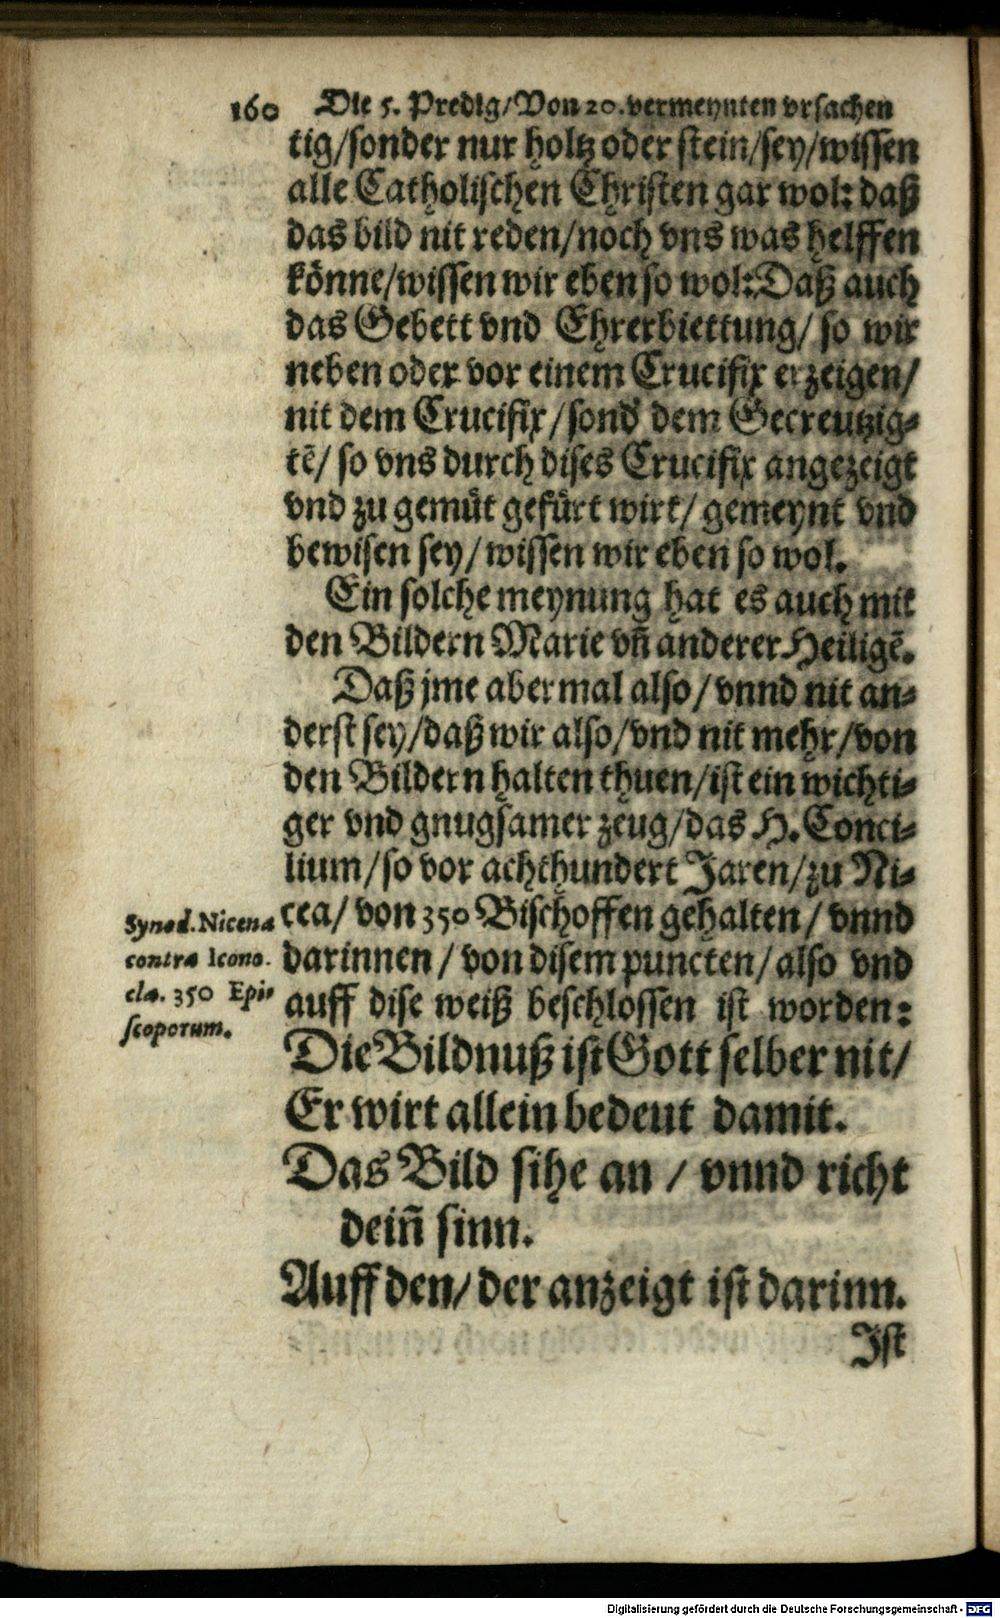 160 Die 5. Predig/Von 20. vermeynten vrsachen
tig/sonder nur holtz oder stein/sey/wissen
alle Catholischen Christen gar wol: daß
das bild nit reden/noch vns was helffen
könne/wissen wir eben so wol: Daß auch
das Gebett vnd Ehrerbiettung/ so wir
neben oder vor einem Crucifix erzeigen/
nit dem Crucifix/sond' dem Gecreutzig-
tē/ so vns durch dises Crucifix angezeigt
vnd zu gemüt gefürt wirt/ gemeynt vnd
bewisen sey/ wissen wir eben so wol.
Ein solche meynung hat es auch mit
den Bildern Marie vñ anderer Heiligē.
Daß jme abermal also/ vnnd nit an-
derst sey/daß wir also/vnd nit mehr/von
den Bildern halten thuen/ist ein wichti-
ger vnd gnugsamer zeug/das H. Conci-
lium/so vor achthundert Jaren/zu Ni-
cea/ von 350 Bischoffen gehalten/ vnnd
darinnen/ von disem puncten/also vnd
auff dise weiß beschlossen ist worden:
Synod. Nicena
contra Icono-
cla. 350 Epi-
scoporum.
Die Bildnuß ist Gott selber nit/
Er wirt allein bedeut damit.
Das Bild sihe an / vnnd richt
deiñ sinn.
Auff den/ der anzeigt ist darinn.
Ist
Digitalisierung gefördert durch die Deutsche Forschungsgemeinschaft - DFG